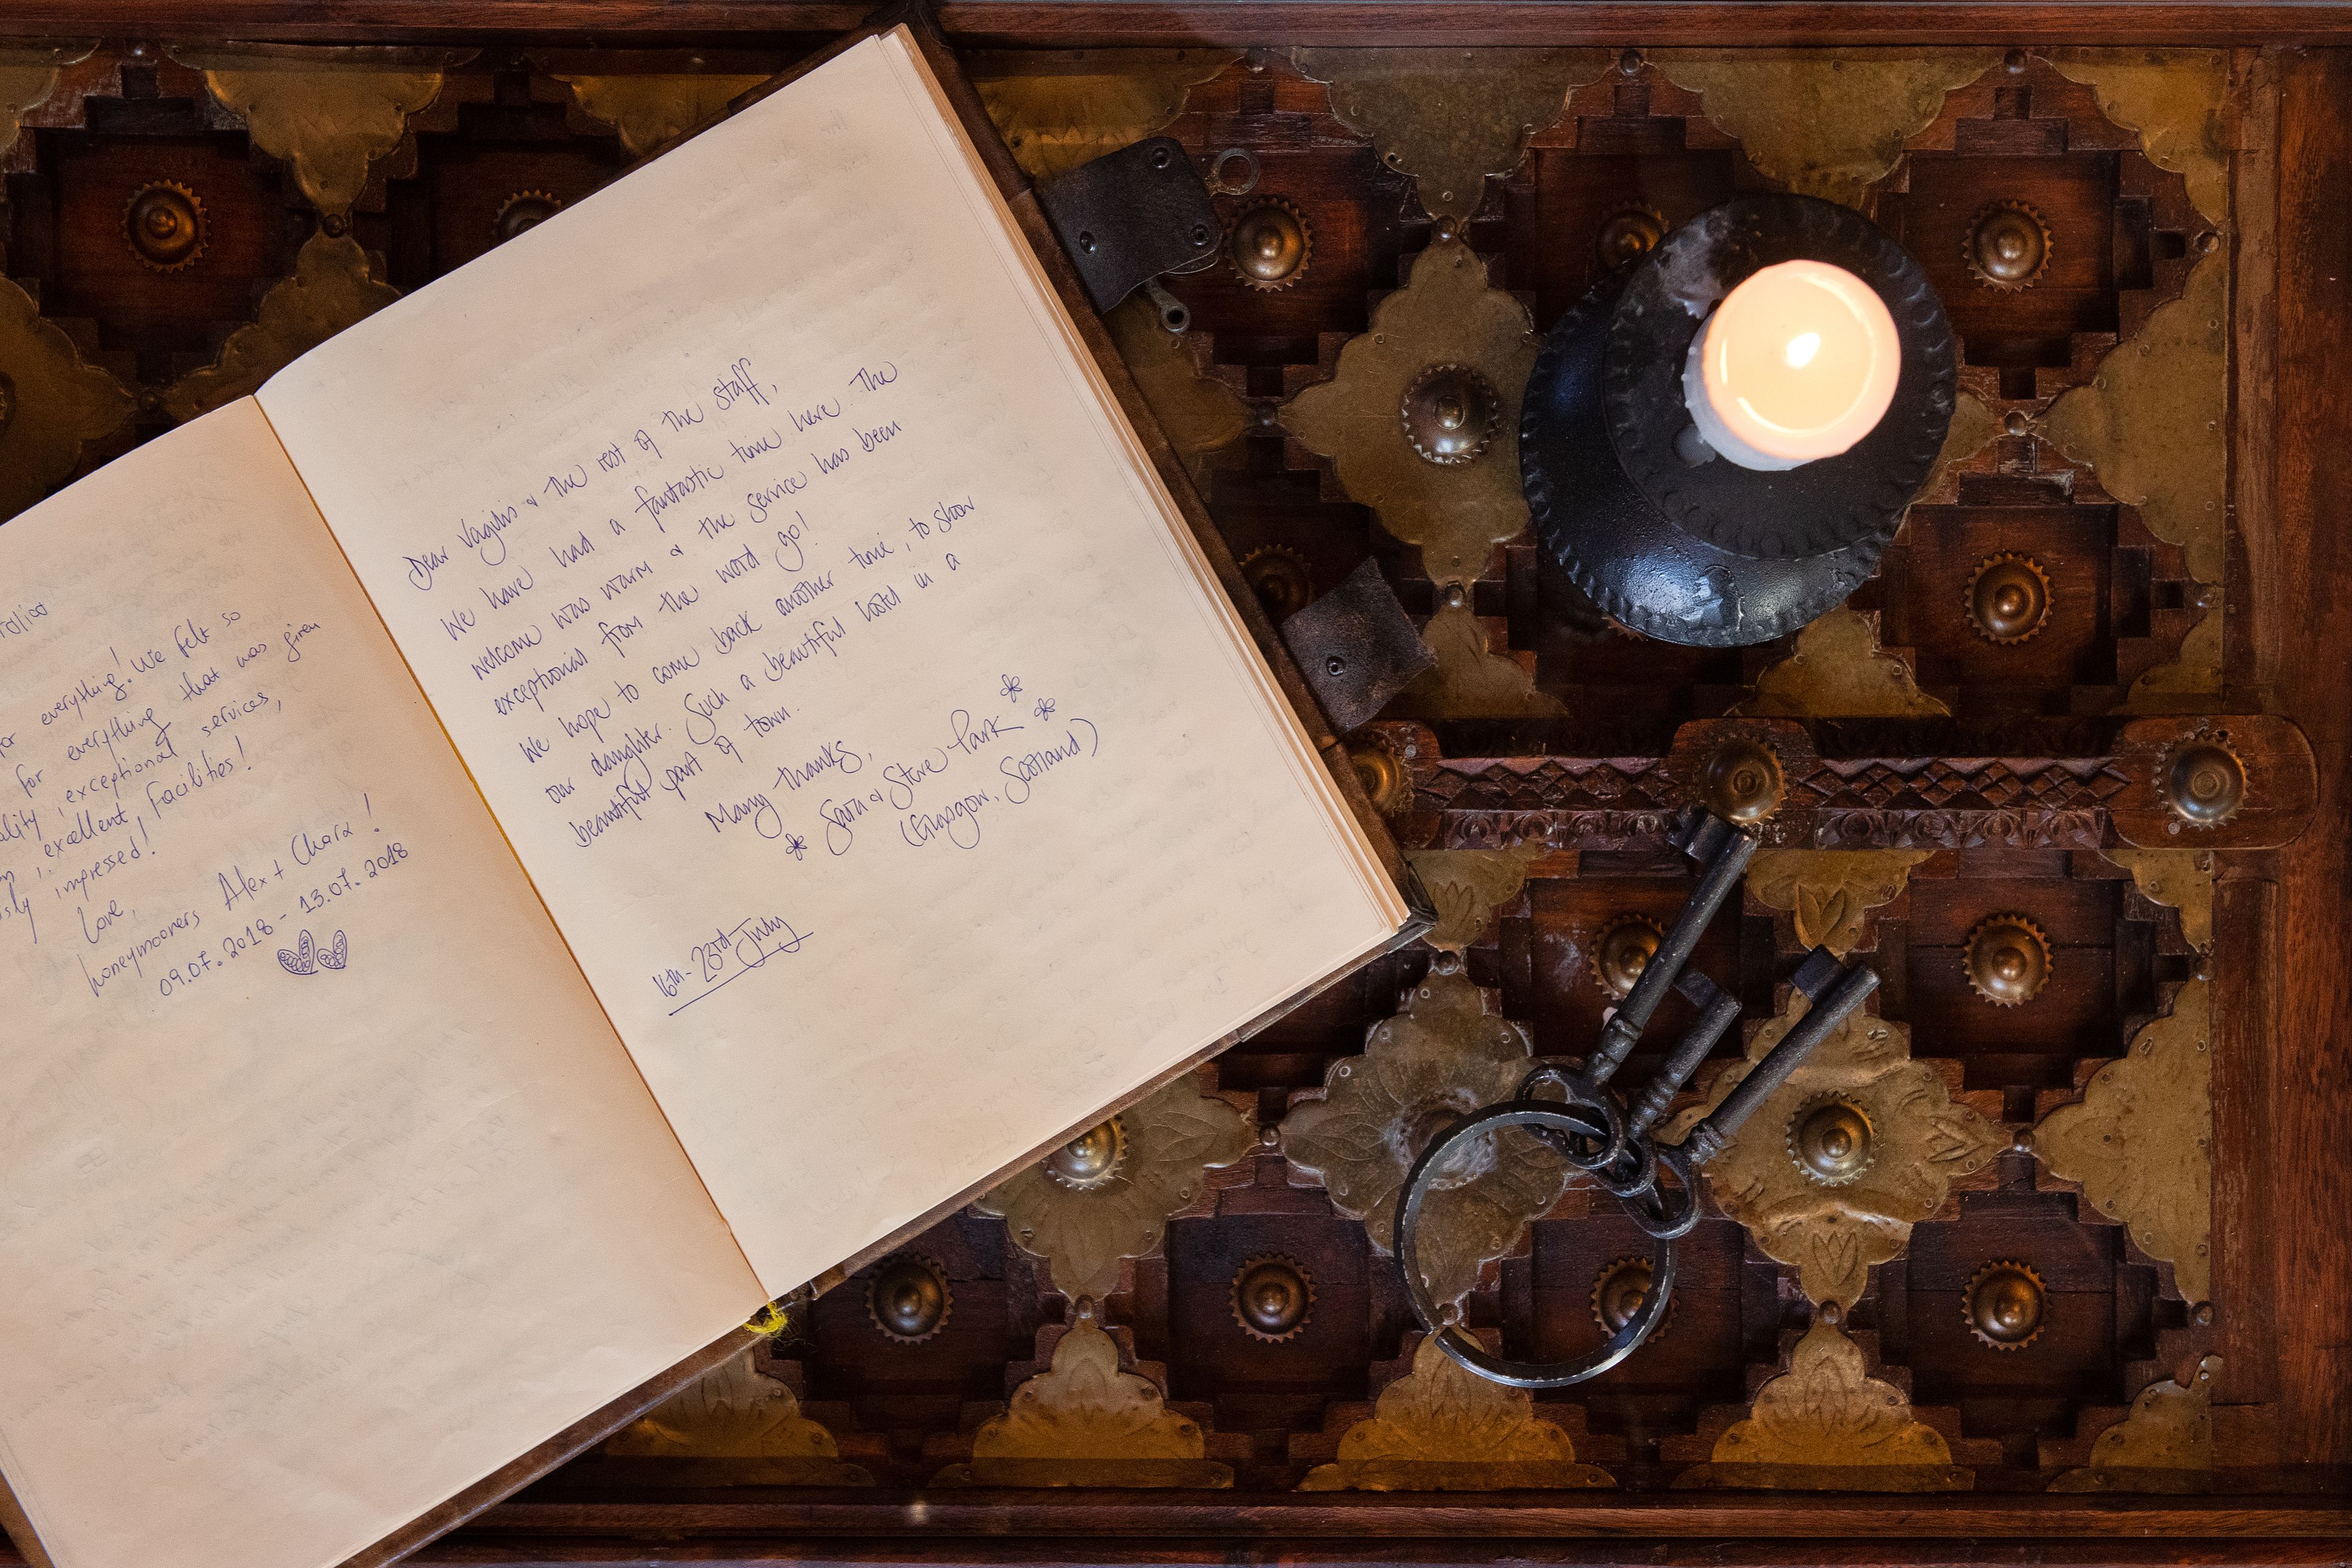 everything! We felt so
for everything that was given
exceptional services,
excellent facilities!
impressed!
Love,
honeymooners Alex + Chara!
09.07.2018 - 13.07.2018
Dear Vagilis & the rest of the staff,
We have had a fantastic time here. The
welcome was warm & the service has been
exceptional from the word go!
We hope to come back another time, to show
our daughter. Such a beautiful hotel in a
beautiful part of town.
Many thanks,
Sara & Steve Park
(Glasgow, Scotland)
16th - 23rd July